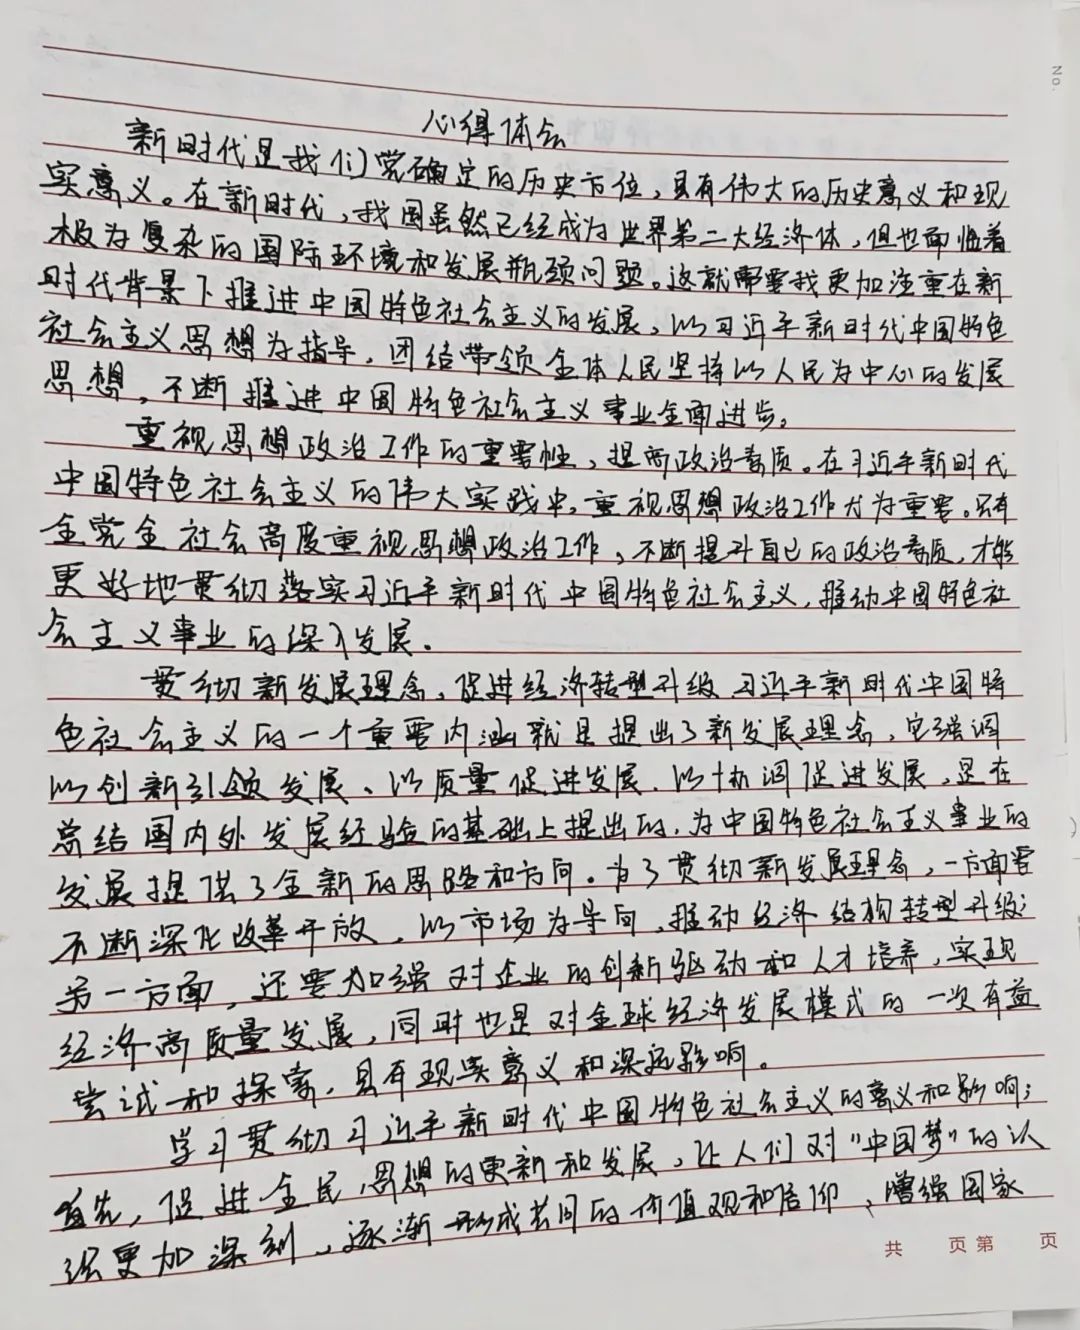 No.
心得体会
新时代是我们党确定的历史方位，具有伟大的历史意义和现
实意义。在新时代，我国虽然已经成为世界第二大经济体，但也面临着
极为复杂的国际环境和发展瓶颈问题。这就需要我更加注重在新
时代背景下推进中国特色社会主义的发展，以习近平新时代中国特色
社会主义思想为指导，团结带领全体人民坚持以人民为中心的发展
思想，不断推进中国特色社会主义事业全面进步。
重视思想政治工作的重要性，提高政治素质。在习近平新时代
中国特色社会主义的伟大实践中，重视思想政治工作尤为重要。只有
全党全社会高度重视思想政治工作，不断提升自己的政治素质，才能
更好地贯彻落实习近平新时代中国特色社会主义，推动中国特色社
会主义事业的深入发展。
贯彻新发展理念，促进经济转型升级 习近平新时代中国特
色社会主义的一个重要内涵就是提出了新发展理念，它强调
以创新引领发展、以质量促进发展、以协调促进发展，是在
总结国内外发展经验的基础上提出的，为中国特色社会主义事业的
发展提供了全新的思路和方向。为了贯彻新发展理念，一方面要
不断深化改革开放，以市场为导向，推动经济结构转型升级；
另一方面，还要加强对企业的创新驱动和人才培养，实现
经济高质量发展，同时也是对全球经济发展模式的一次有益
尝试和探索，具有现实意义和深远影响。
学习贯彻习近平新时代中国特色社会主义的意义和影响；
首先，促进全民思想的更新和发展，让人们对“中国梦”的认
识更加深刻，逐渐形成共同的价值观和信仰，增强国家
共 页 第 页